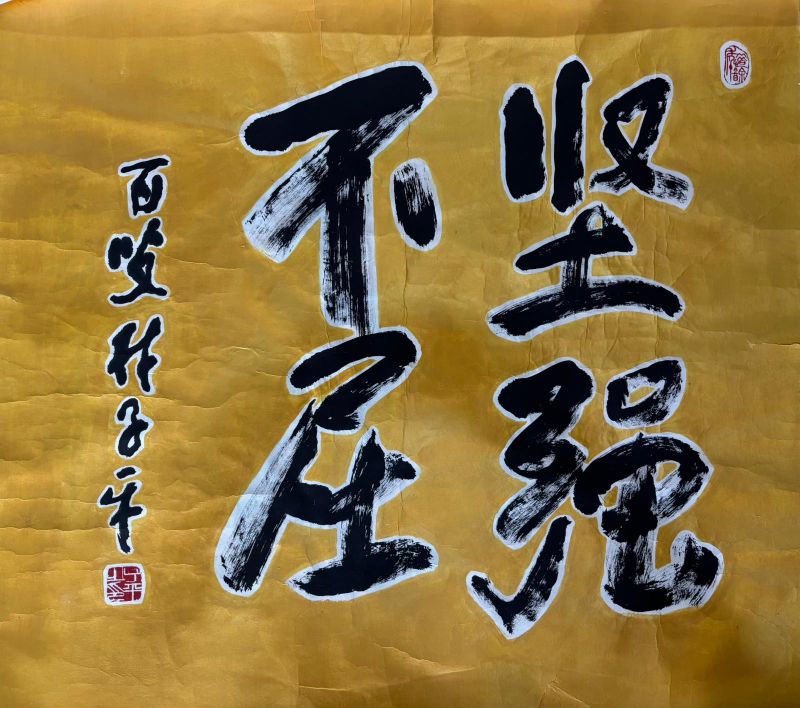 坚强
不屈
百叟林子平